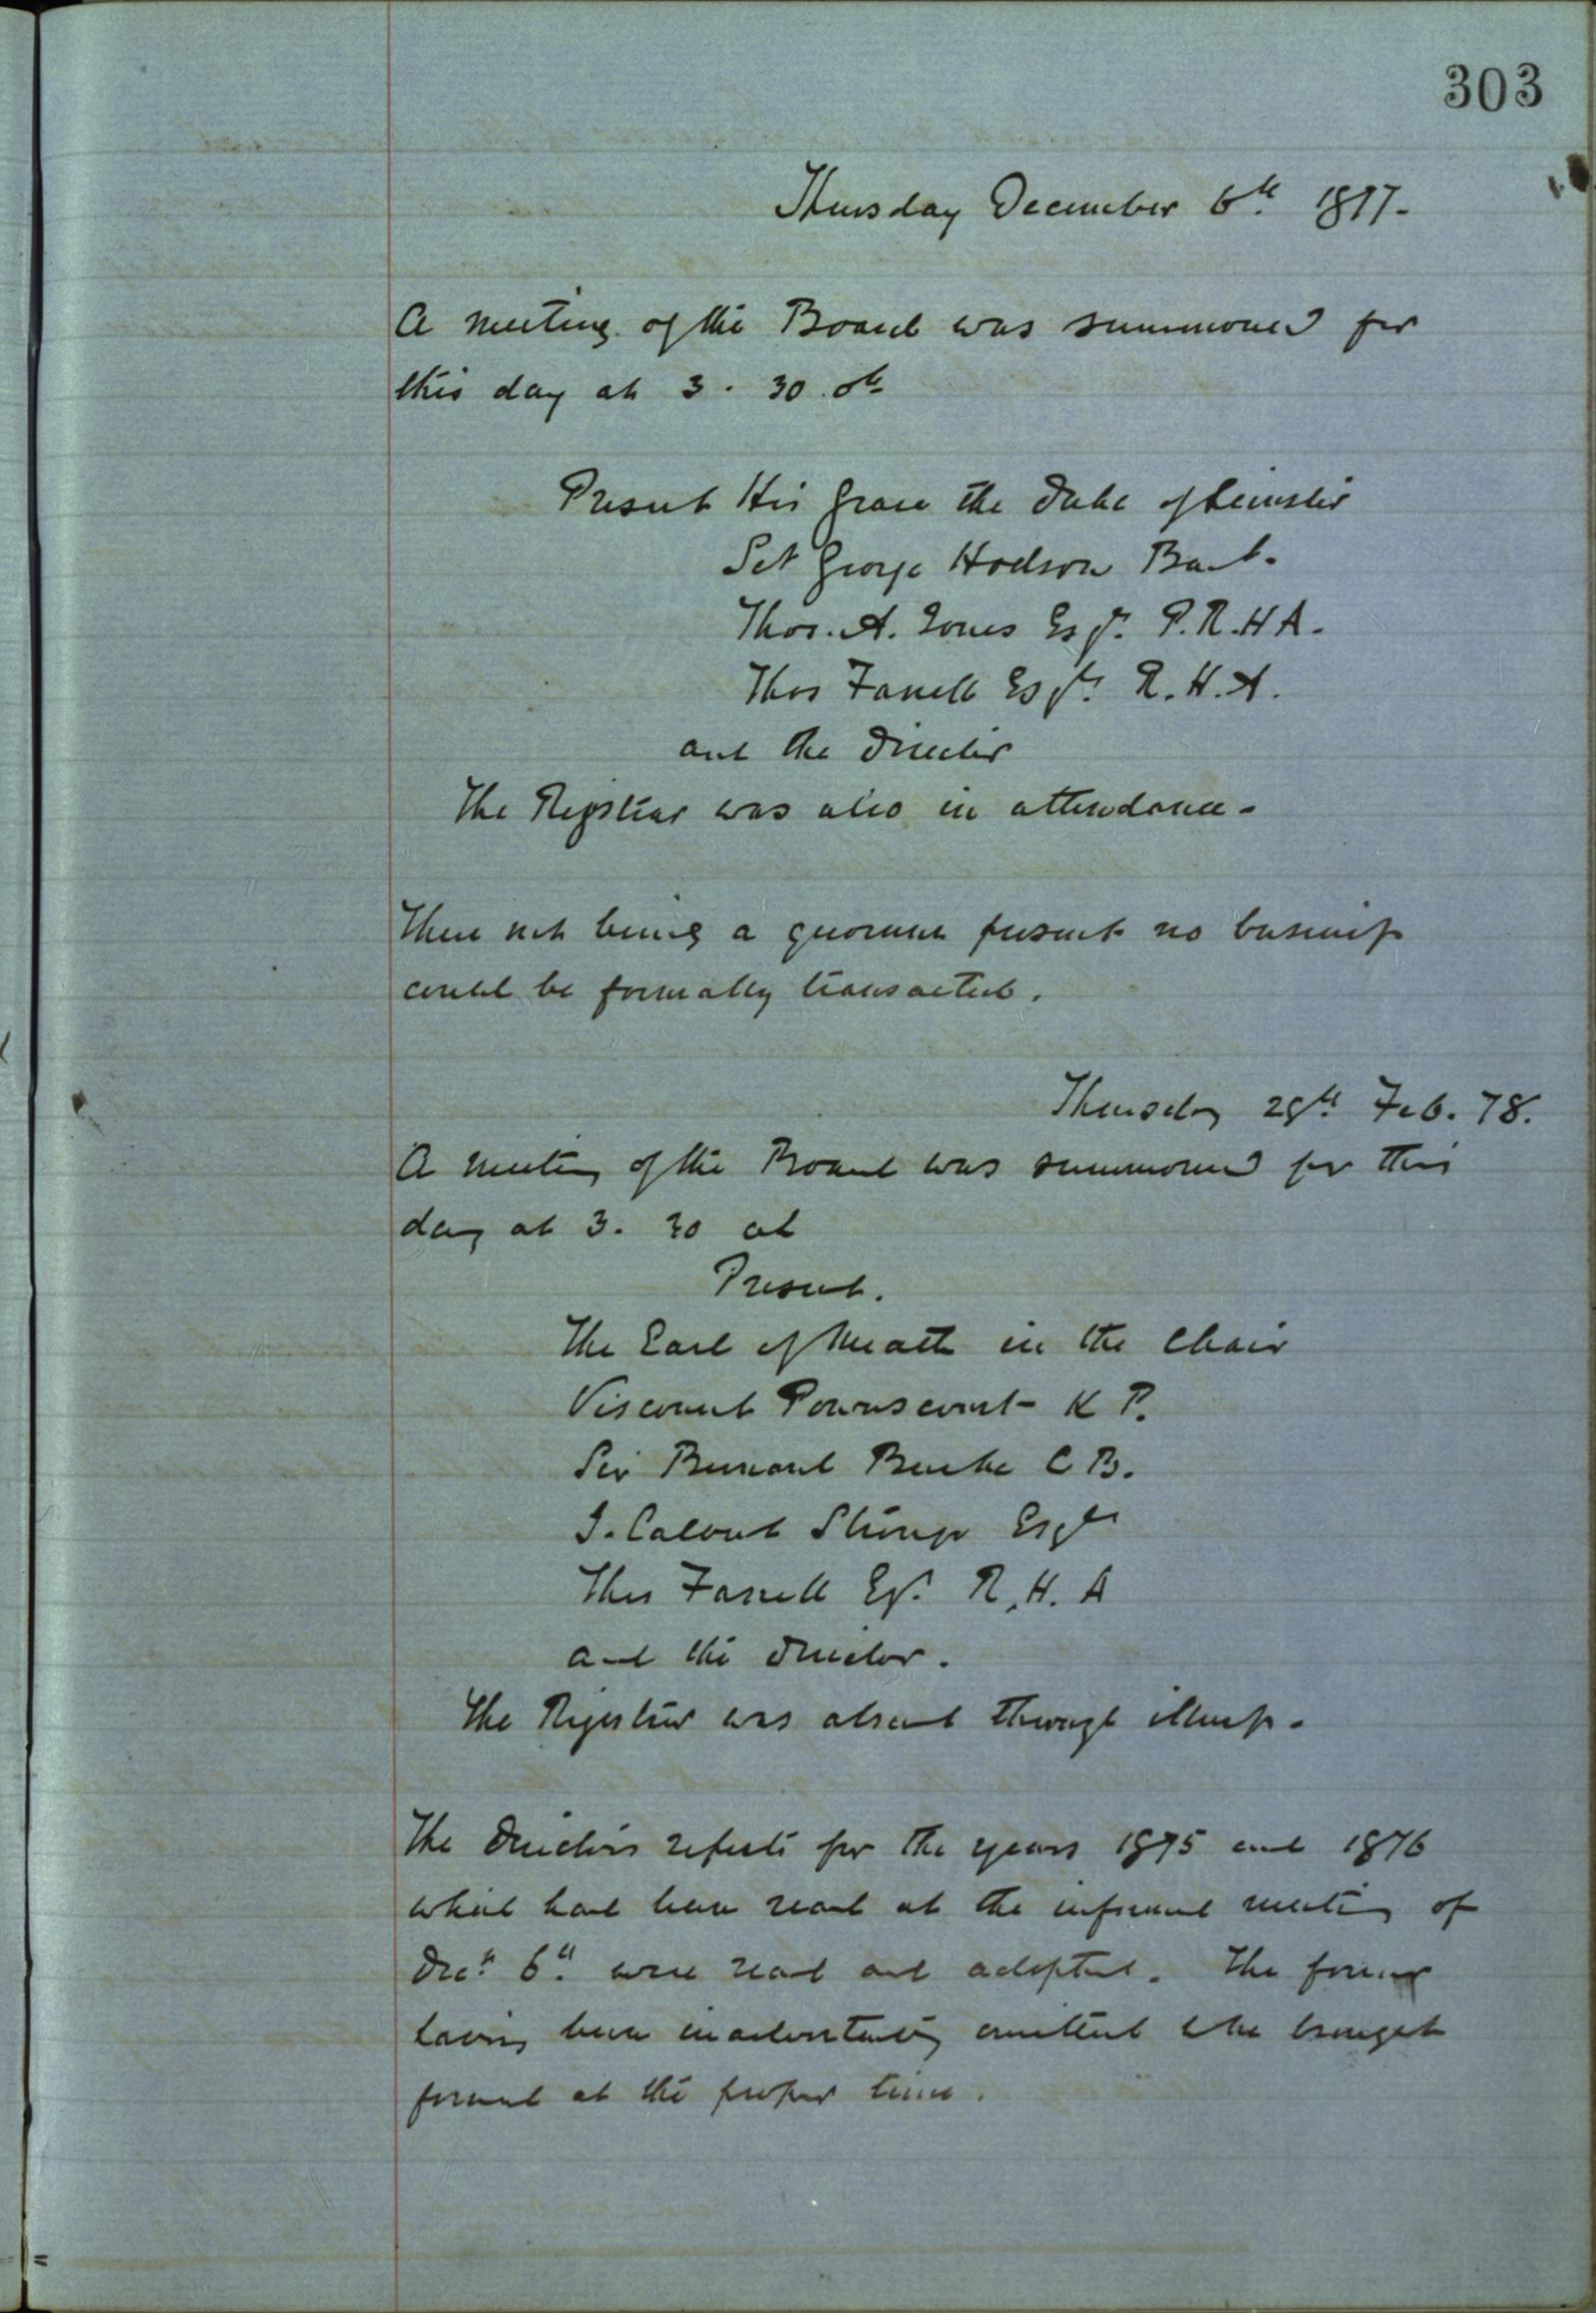 303
Thursday December 6th 1877-
A meeting of the Board was summoned for
this day at 3. 30 ock
Present His Grace the Duke of Leinster
Sir George Hodson Bart.
Thos. A. Jones Esqr. P.R.H.A.
Thos Farrell Esqr. R.H.A.
and the Director
The Registrar was also in attendance-
There not being a quorum present no business
could be formally transacted.
Thursday 28th Feb. 78.
A meeting of the Board was summoned for this
day at 3. 30 ock
Present.
The Earl of Meath in the Chair
Viscount Powerscourt K P.
Sir Bernard Burke C B.
J. Calvert Stronge Esqre
Thos Farrell Esqr. R.H.A
and the Director.
The Registrar was absent through illness-
The Directors reports for the years 1875 and 1876
which had been read at the informal meeting of
Decr. 6th. were read and adopted. The former
having been inadvertently omitted to be brought
forward at the proper time.